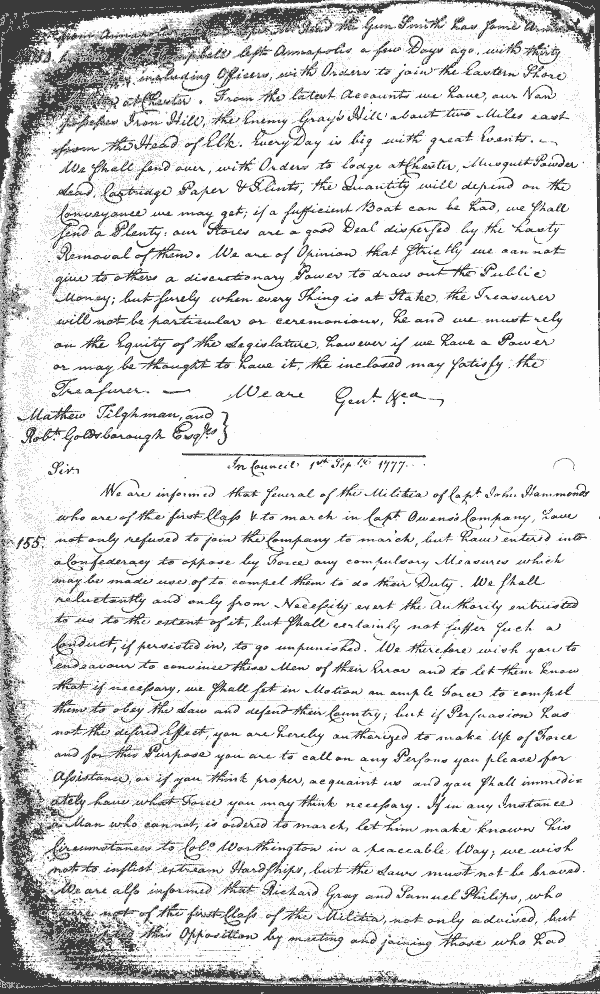 from Annapolis Head the Gun Smith has some Arms
left Annapolis a few Days ago, with thirty
including Officers, with Orders to join the Eastern Shore
at Chester. From the latest Accounts we have, our Van
possesses Iron Hill, the Enemy Grays Hill about two Miles east
from the Head of Elk. Every Day is big with great Events. —
We shall send over, with Orders to lodge at Chester, Musquet Powder
Lead, Cartridge Paper & Flints, the Quantity will depend on the
Conveyance we may get; if a sufficient Boat can be had, we shall
send a Plenty: our Stores are a good Deal dispersed by the hasty
Removal of them. We are of Opinion that strictly we cannot
give to others a discretionary Power to draw out the Public
Money; but surely when every Thing is at Stake, the Treasurer
will not be particular or ceremonious, he and we must rely
on the Equity of the Legislature, however if we have a Power
or may be thought to have it, the inclosed may satisfy the
Treasurer. — We are Gent. &ca
Mathew Tilghman, and
Robt. Goldsborough Esqrs }
In Council 1st Sepr. 1777.
Sir
We are informed that several of the Militia of Capt. John Hammonds
who are of the first Class & to march in Capt Owens's Company, have
155. not only refused to join the Company to march, but have entered into
a Confederacy to oppose by Force any compulsory Measures which
may be made use of to compel them to do their Duty. We shall
reluctantly and only from Necessity exert the Authority entrusted
to us to the extent of it, but shall certainly not suffer such a
Conduct, if persisted in, to go unpunished. We therefore wish you to
endeavour to convince these Men of their Error and to let them know
that if necessary, we shall set in Motion an ample Force to compel
them to obey the Law and defend their Country; but if Persuasion has
not the desired Effect, you are hereby authorized to make Use of Force
and for this Purpose you are to call on any Persons you please for
Assistance, or if you think proper, acquaint us and you shall immedi-
ately have what Force you may think necessary. If in any Instance
a Man who cannot, is ordered to march, let him make known his
Circumstances to Colo. Worthington in a peaceable Way; we wish
not to inflict extream Hardships, but the Laws must not be braved.
We are also informed that Richard Gray and Samuel Philips, who
were not of the first Class of the Militia, not only advised, but
this Opposition by meeting and joining those who had